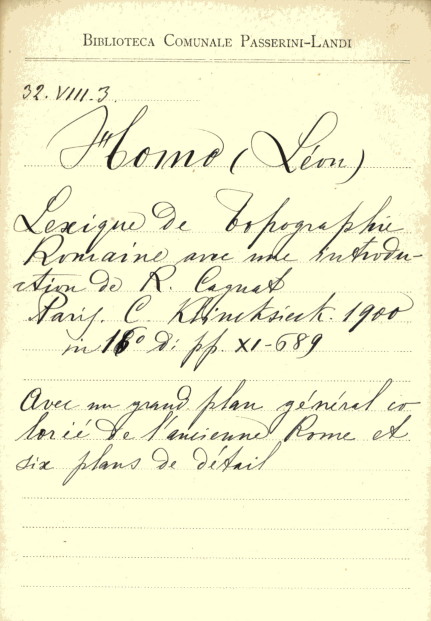 BIBLIOTECA COMUNALE PASSERINI-LANDI
32.VIII.3.
Homo (Léon)
Lexique de topographie
Romaine avec une introdu-
ction de R. Cagnat
Paris. C. Klincksieck. 1900
in 16º di pp. XI-689
Avec un grand plan général co
lorié de l'ancienne Rome et
six plans de détail